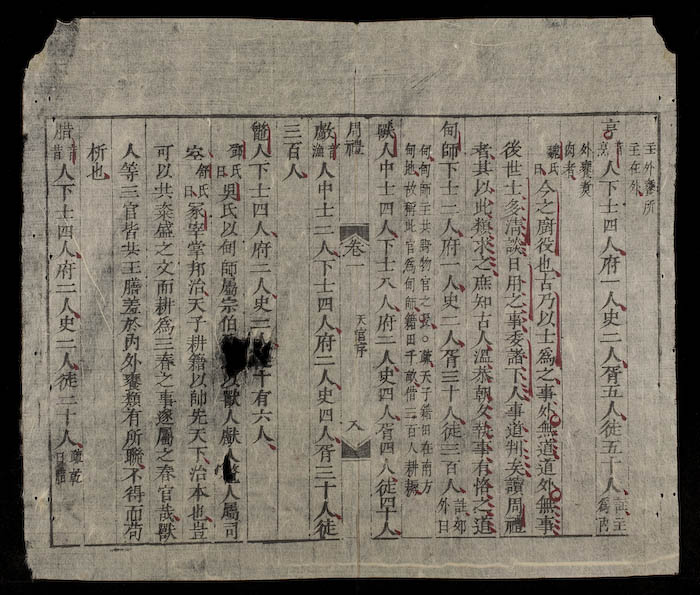 主外饔所
主在外
亨音烹人下士四人府一人史二人胥五人徒五十人註主爲內
外饔煑
肉者
魏氏曰今之廚役也古乃以士爲之事外無道道外無事
後世士多清談日用之事委諸下人事道判矣讀周禮
者其以此類求之庶知古人溫恭朝夕執事有恪之道
甸師下士二人府一人史二人胥三十人徒三百人註郊外曰
甸甸師主共野物官之長。天子籍田在南方
甸地故稱此官爲甸師籍田千畝借三百人耕耨
獸人中士四人下士八人府二人史四人胥四人徒四十人
周禮 卷一 天官序 八
䱷音漁人中士二人下士四人府二人史四人胥三十人徒
三百人
鼈人下士四人府二人史二人徒十有六人
鄧氏曰吳氏以甸師屬宗伯以獸人䱷人鼈人屬司
空鄧氏曰冢宰掌邦治天子耕籍以帥先天下治本也豈
可以共粢盛之文而耕爲三春之事遂屬之春官哉獸
人等三官皆共王膳羞於內外饔類有所聯不得而苟
析也
腊音昔人下士四人府二人史二人徒二十人